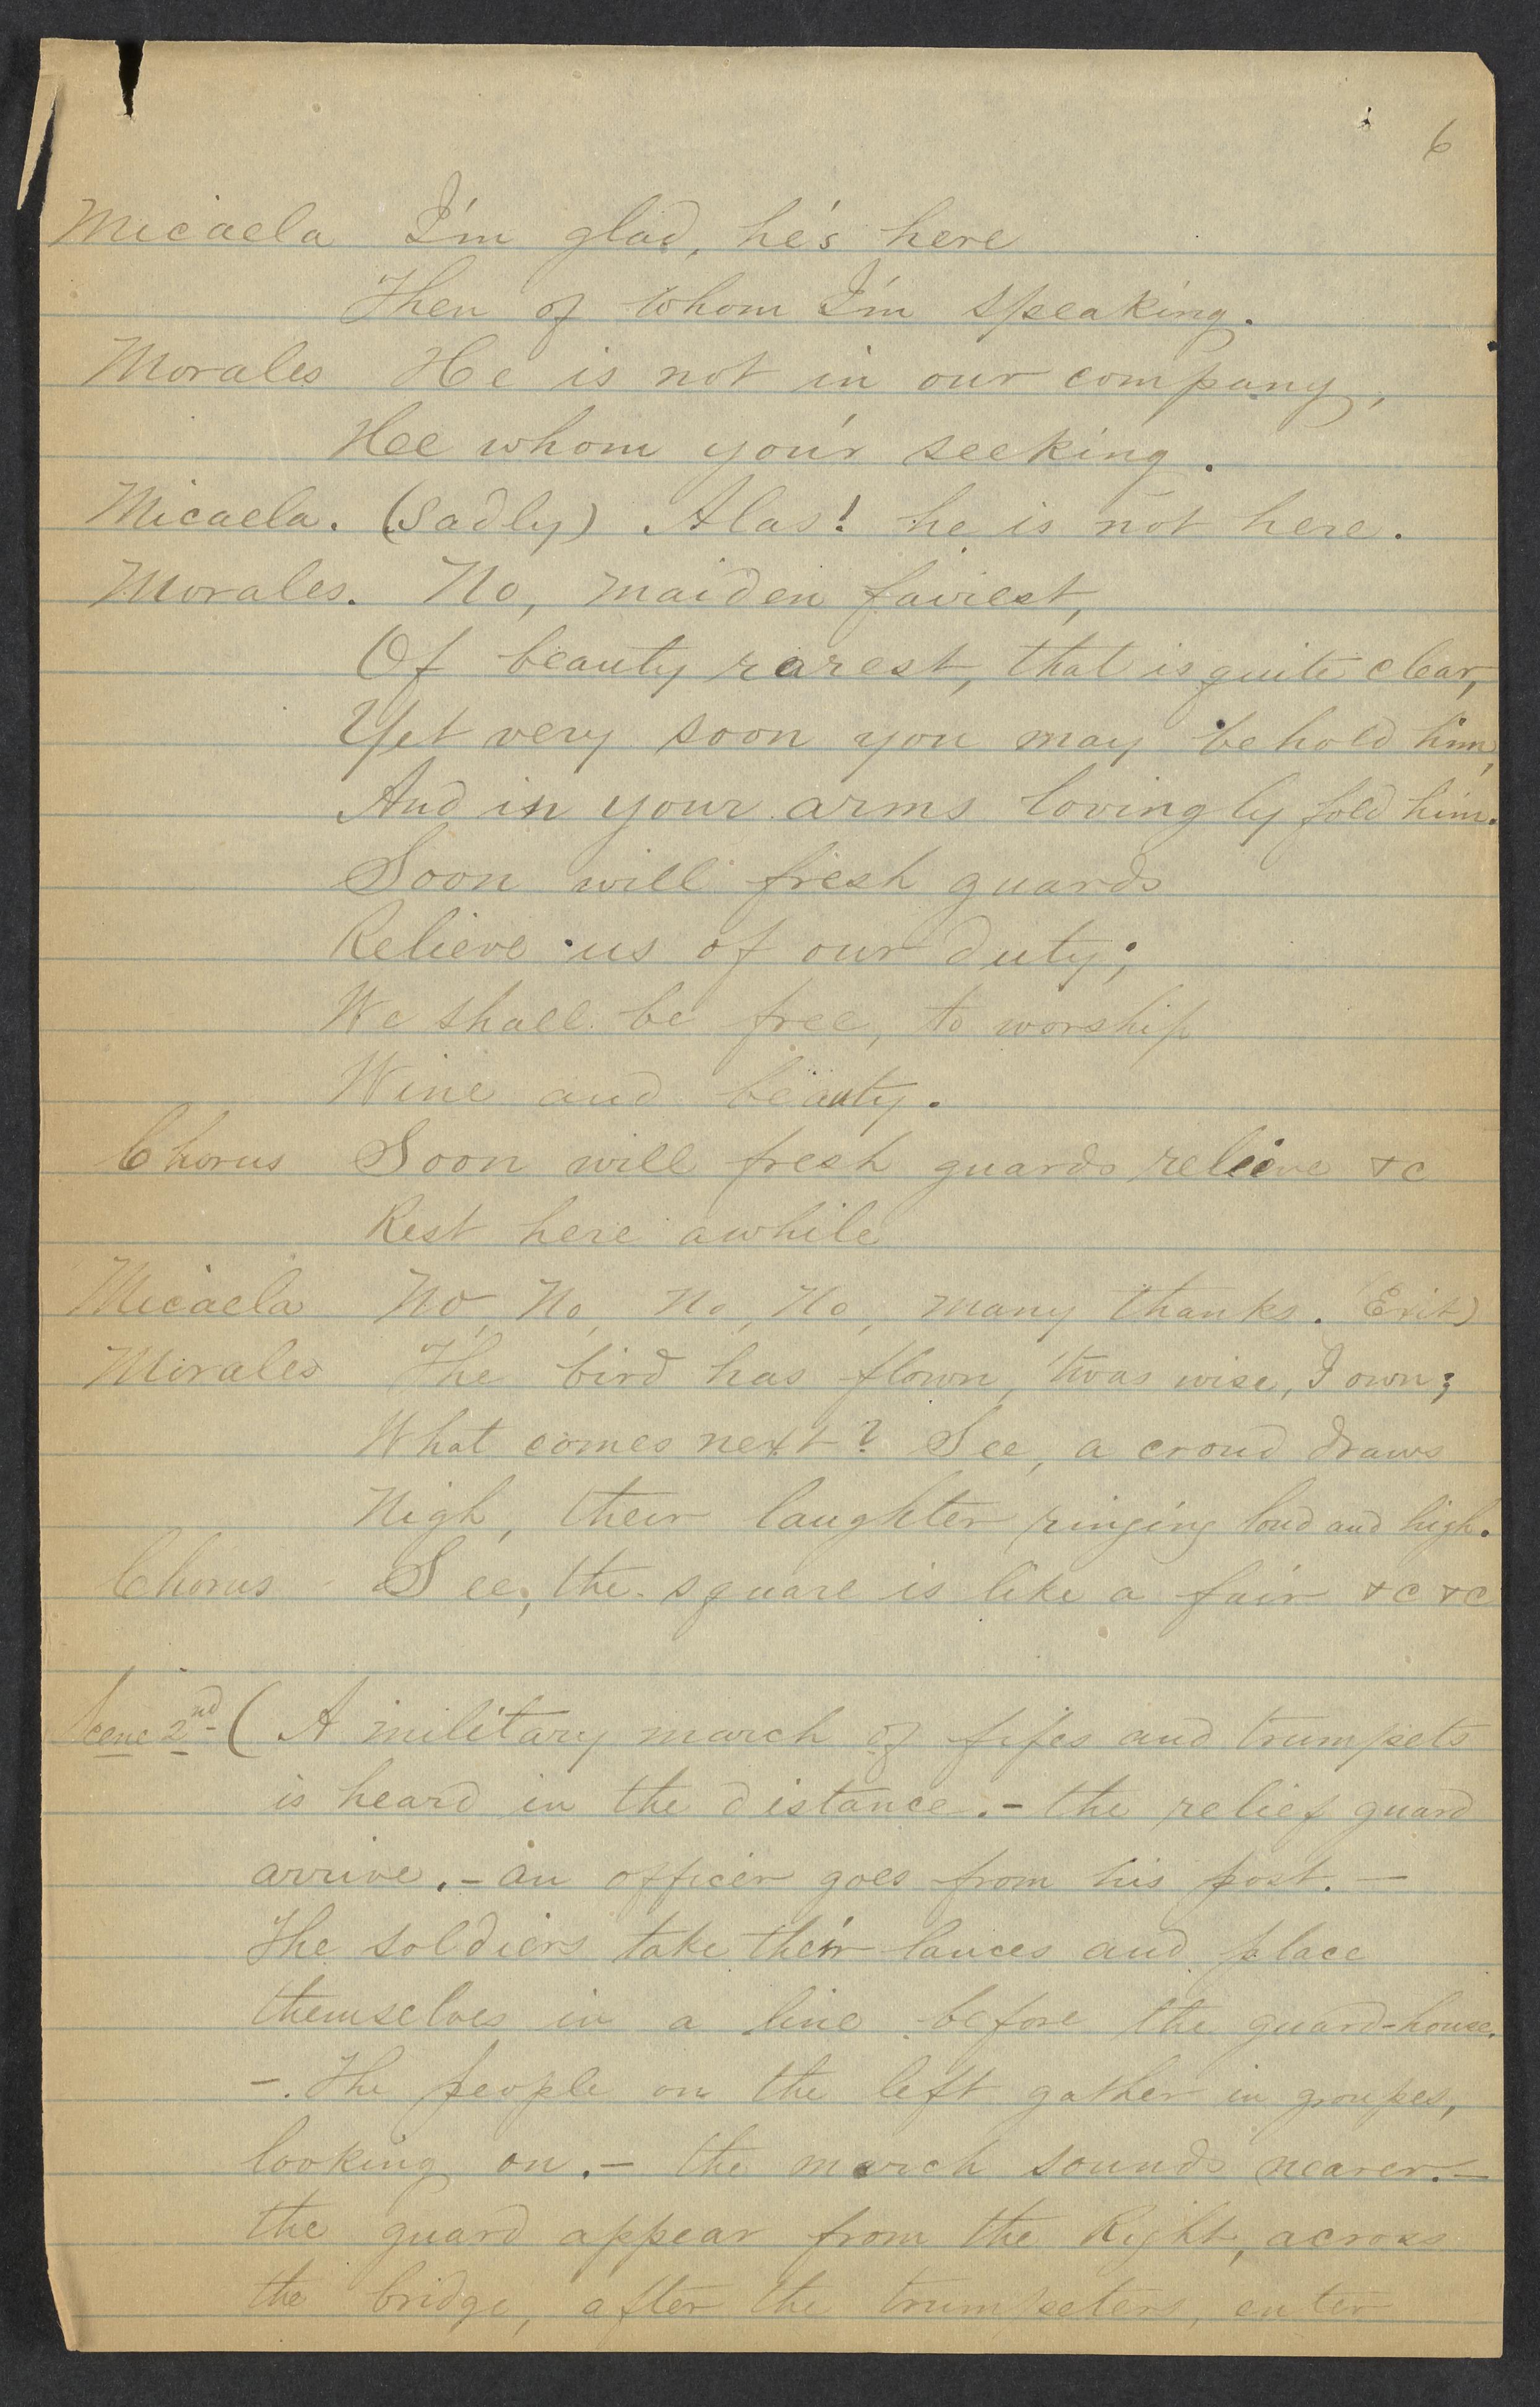 6
Micaela I'm glad, he's here
Then of whom I'm speaking.
Morales He is not in our company,
Hee whom you'r seeking.
Micaela. (Sadly) Alas! he is not here.
Morales. No, maiden fairest,
Of beauty rarest, that is quite clear,
Yet very soon you may behold him,
And in your arms lovingly fold him.
Soon will fresh guards
Relieve us of our duty;
We shall be free, to worship
Wine and beauty.
Chorus Soon will fresh guards relieve &c
Rest here awhile
Micaela No, No, No, No, many thanks. (Exit)
Morales The bird has flown, 'twas wise, I own;
What comes next? See, a croud draws
Nigh, their laughter ringing loud and high.
Chorus See, the square is like a fair &c &c
Scene 2nd - (A military march of fifes and trumpets
is heard in the distance. - the relief guard
arrive. - an officer goes from his post. -
The soldiers take their lances and place
themselves in a line before the guard-house.
-. The people on the left gather in groupes,
looking on. - the march sounds nearer. -
the guard appear from the Right, across
the bridge, after the trumpeters, enter